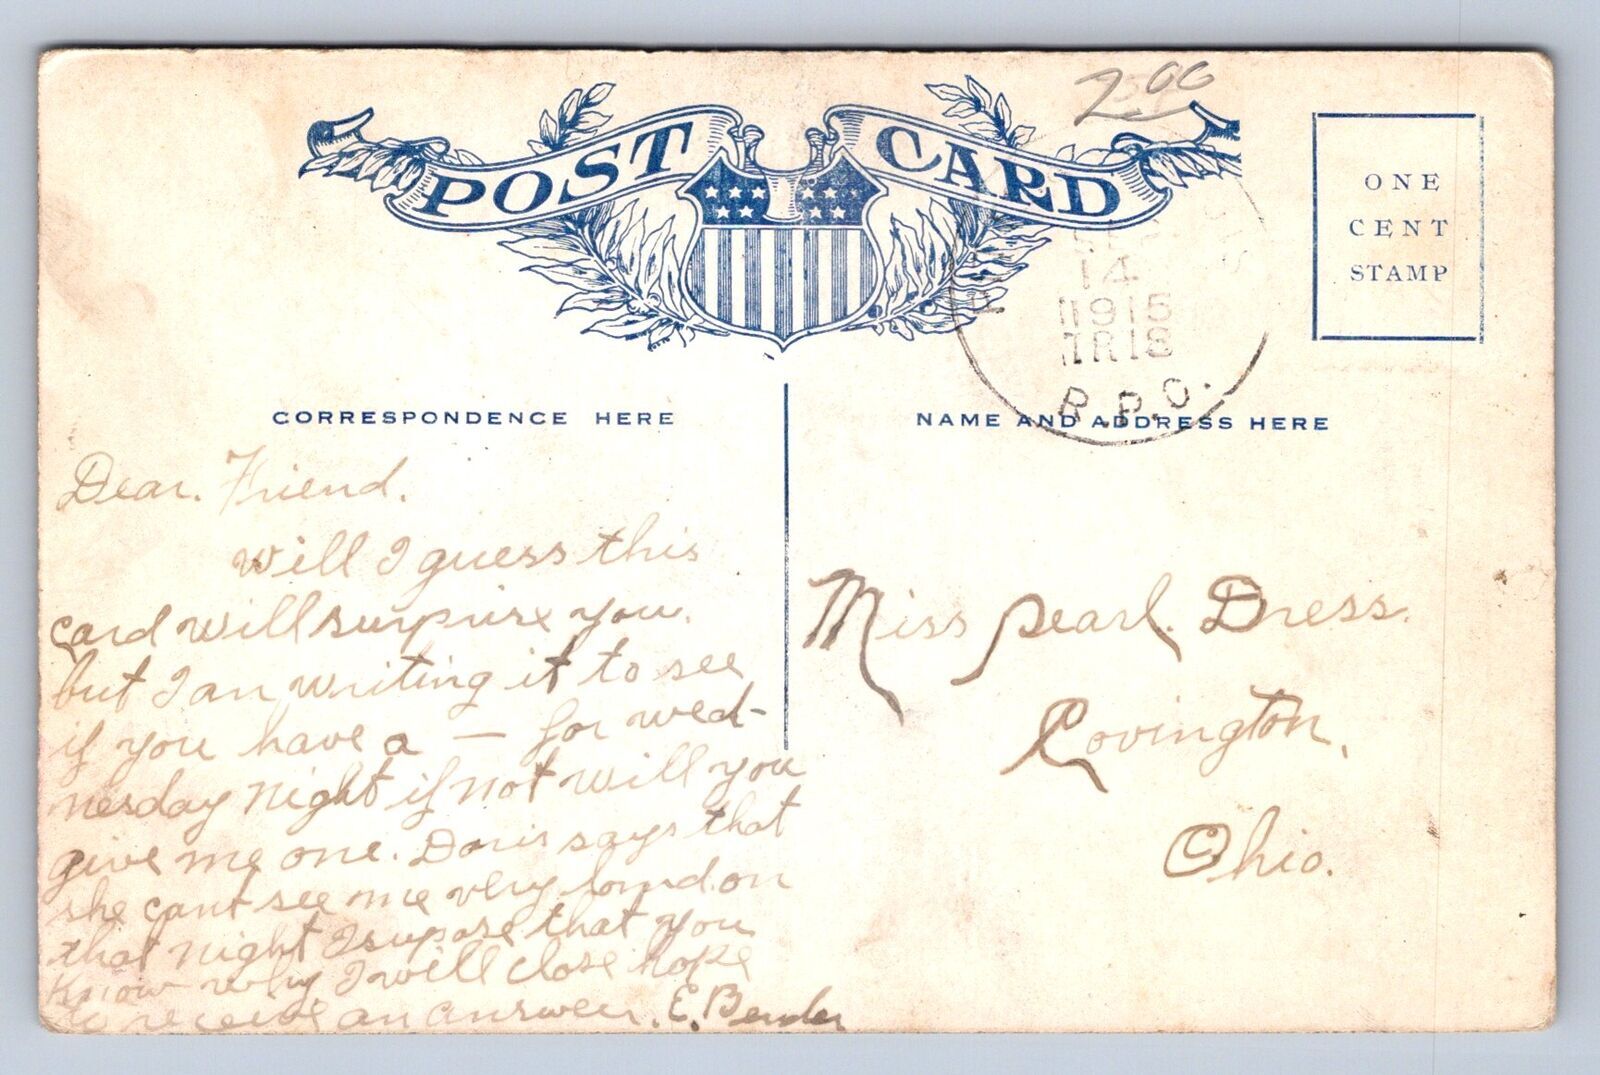 2.00
POST CARD
ONE
CENT
STAMP
14
1915
R.P.O.
CORRESPONDENCE HERE
NAME AND ADDRESS HERE
Dear. Friend.
Will I guess this
card will surprise you.
but I an writing it to see
if you have a — for wed-
nesday night if not will you
give me one. Doris says that
she cant see me very loud on
that night I supose that you
know why I will close hope
to receive an answer. E. Bender
Miss Pearl. Dress.
Covington,
Ohio.